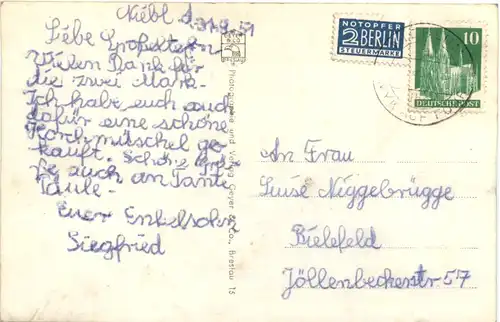 Niebl d. 31.8.51
Liebe Großeltern
Vielen Dank für
die zwei Mark.
Ich habe euch auch
dafür eine schöne
Horchmuschel ge
kauft. Schöne Grü
ße auch an Tante
Paule.
Euer Enkelsohn
Siegfried
Photographie und Verlag Geyer & Co., Breslau 15
NOTOPFER
2 BERLIN
STEUERMARKE
10
DEUTSCHE POST
An Frau
Luise Niggebrügge
Bielefeld
Jöllenbeckerstr 57